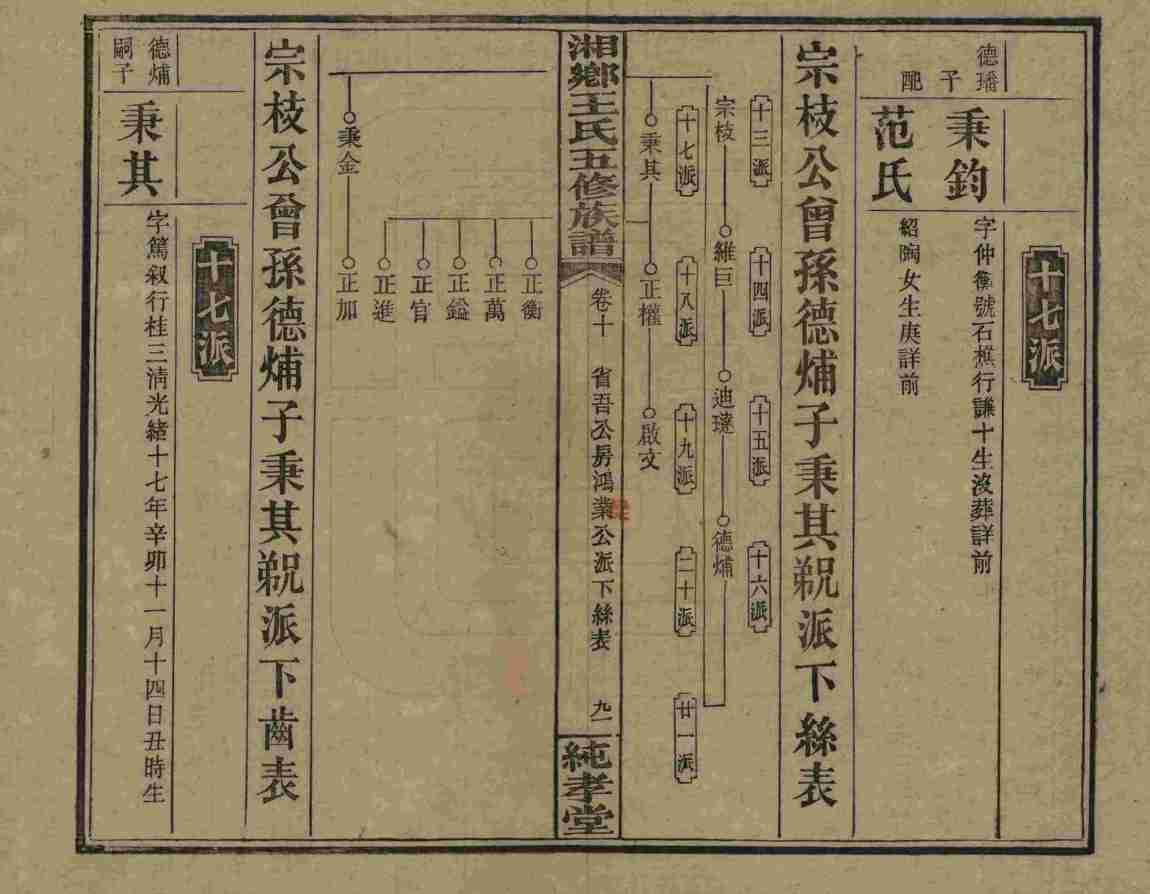 十七派
德璠子
秉鈞
字仲衡號石樵行謙十生沒葬詳前
配
范氏
紹陶女生庚詳前
宗枝公曾孫德㶵子秉其派下絲表
十三派
十四派
十五派
十六派
宗枝
維巨
迪璲
德㶵
十七派
十八派
十九派
二十派
廿一派
秉其
正權
啟文
湘鄉王氏五修族譜
卷十
省吾公房鴻業公派下絲表
九一
純孝堂
正衡
正萬
正鎰
正官
正進
秉金
正加
宗枝公曾孫德㶵子秉其派下齒表
十七派
德㶵嗣子
秉其
字篤叙行桂三清光緒十七年辛卯十一月十四日丑時生